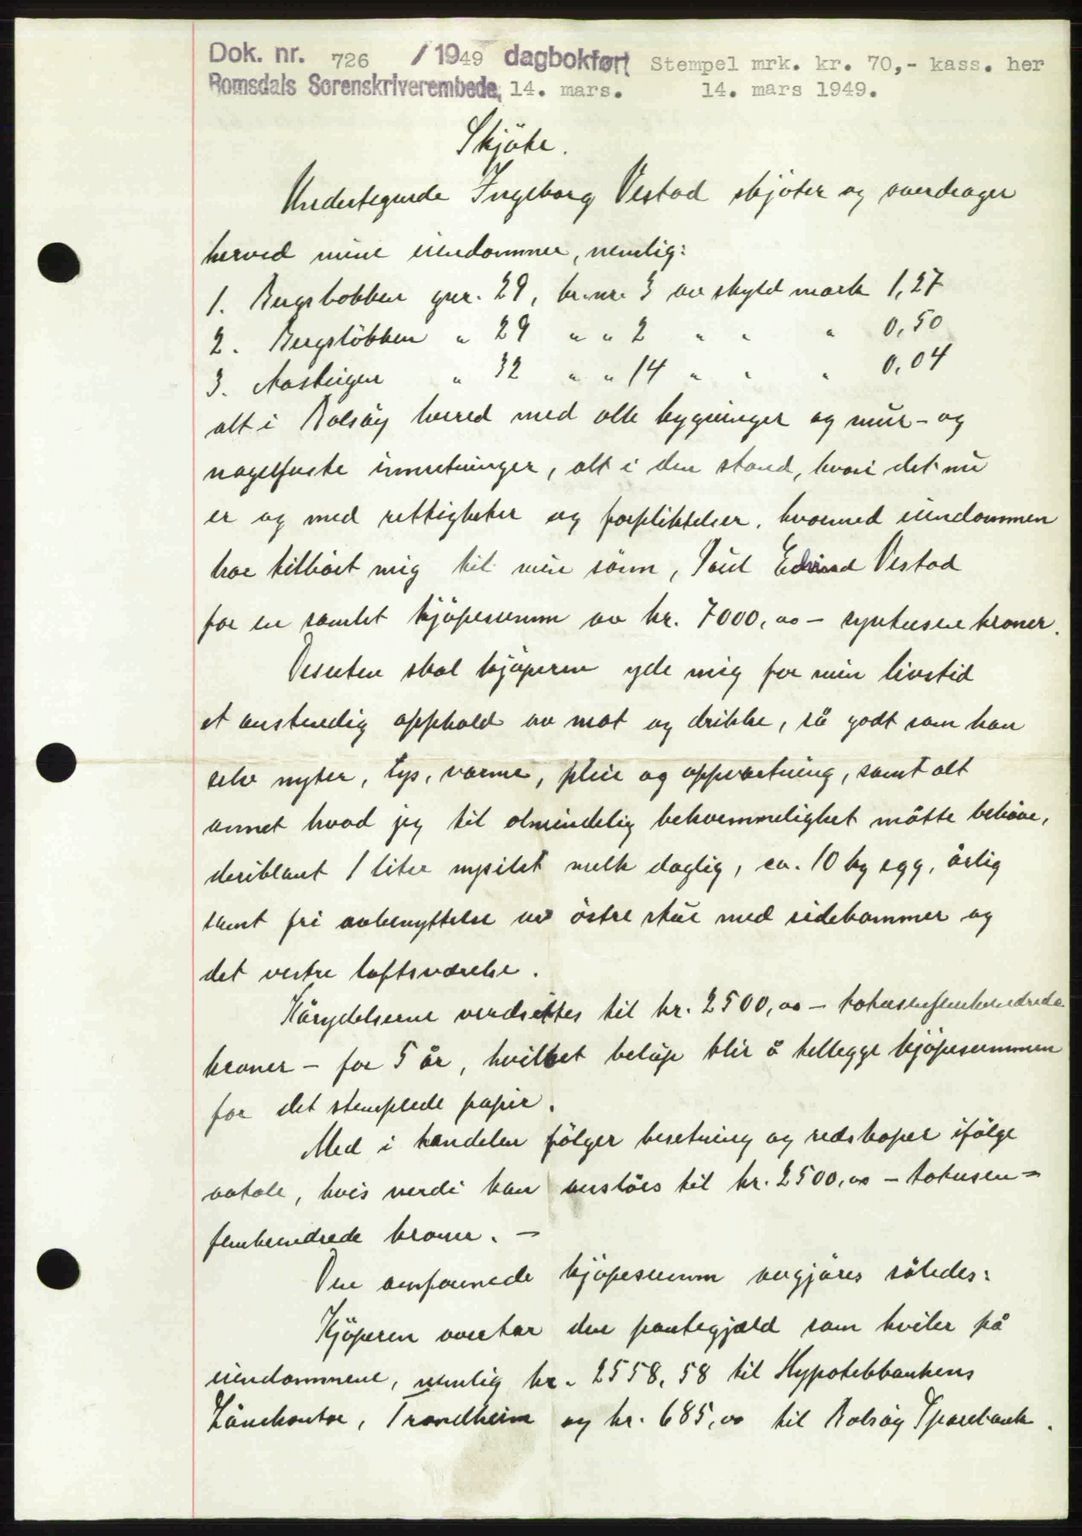 Dok. nr. 726 / 1949 dagbokført Stempel mrk. kr. 70,- kass. her
Romsdals Sorenskriverembede, 14. mars. 14. mars 1949.
Skjöte.
Undertegnede Ingeborg Vestad skjöter og overdrager
herved mine eiendommer, nemlig:
1. Bergsbakken gnr. 29, br.nr. 3 av skyld mark 1,27
2. Bergslökken " 29 " " 2 " " " 0,50
3. " 32 " " 14 " " " 0,04
alt i Bolsöy herred med alle bygninger og mur- og
nagelfaste innretninger, alt i den stand, hvori det nu
er og med rettigheter og forpliktelser, hvormed eiendommen
har tilhört mig til min sönn, Paul Edvind Vestad
for en samlet kjöpesumm av kr. 7000,00 - syvtusene kroner.
Desuten skal kjöperen yde mig for min livstid
et anstendig opphold av mat og drikke, så godt som han
selv nyter, lys, varme, pleie og oppvartning, samt alt
annet hvad jeg til almindelig bekvemmelighet måtte behöve,
deriblant 1 liter nysilet melk daglig, ca. 10 kg egg, årlig
samt fri avbenyttelse av östre stue med sidekammer og
det vestre loftsværelse.
Kårydelserne verdsettes til kr. 2500,00 - totusenfemhundrede
kroner - for 5 år, hvilket belöp blir å tillegge kjöpesummen
for det stemplede papir.
Med i handelen fölger besetning og redskaper ifölge
avtale, hvis verdi kan anslåes til kr. 2500,00 - totusen-
femhundrede kroner. -
Den omforenede kjöpesumm avgjöres således:
Kjöperen overtar den pantegjæld som hviler på
eiendommene, nemlig kr. 2558,58 til Hypotekbankens
Lånekontor, Trondheim og kr. 685,00 til Bolsöy Sparebank.